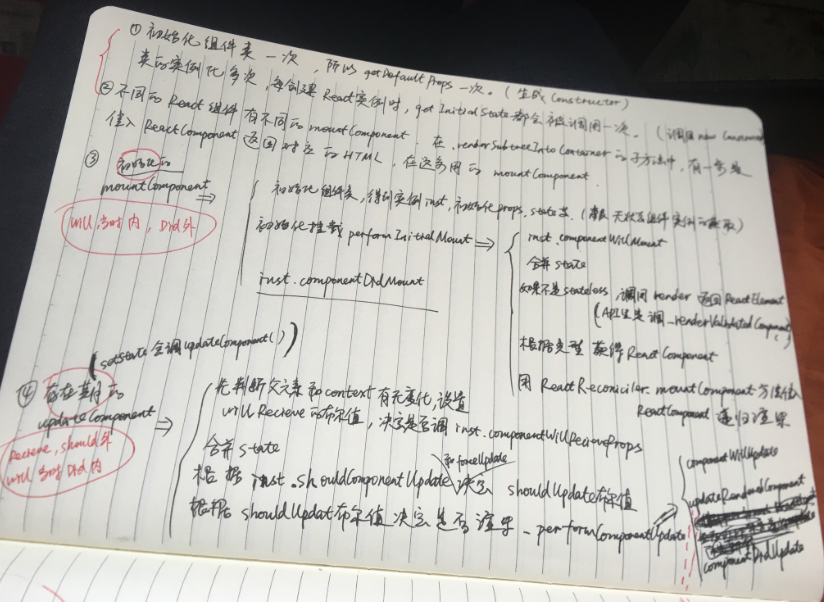 ① 初始化组件类一次，所以 getDefaultProps 一次。（生成 Constructor）
类的实例化多次，每创建React实例时，getInitialState都会被调用一次。（调用 new
② 不同的 React 组件有不同的 mountComponent. 在 .renderSubtreeIntoContainer 的子方法中，有一步是
ReactComponent 返回对应的 HTML，在这步用的 mountComponent.
③ 初始化的
mountComponent ⇒
will 当时内，Did外
初始化组件类，得到实例inst，初始化props，state等（ 无状态组件实例
初始化挂载 performInitialMount ⇒
inst.componentDidMount
inst.componentWillMount
合并state
如果不是stateless 调用render 返回ReactElement
(API里是调_renderValidatedComponent)
根据类型 获得ReactComponent
用 ReactReconciler.mountComponent 方法
ReactComponent 递归渲染
(setState会调updateComponent())
④ 存在 的
updateComponent ⇒
Recieve, should外
will当时Did内
先判断父元素和context有无变化，设置
willRecieve的布尔值，决定是否调inst.componentWillRecieveProps
合并state
根据 inst.shouldComponentUpdate 和forceUpdate 决定 shouldUpdate布尔值
根据 shouldUpdat布尔值决定是否渲染 _performComponentUpdate
componentWillUpdate
updateRenderedComponent
componentDidUpdate